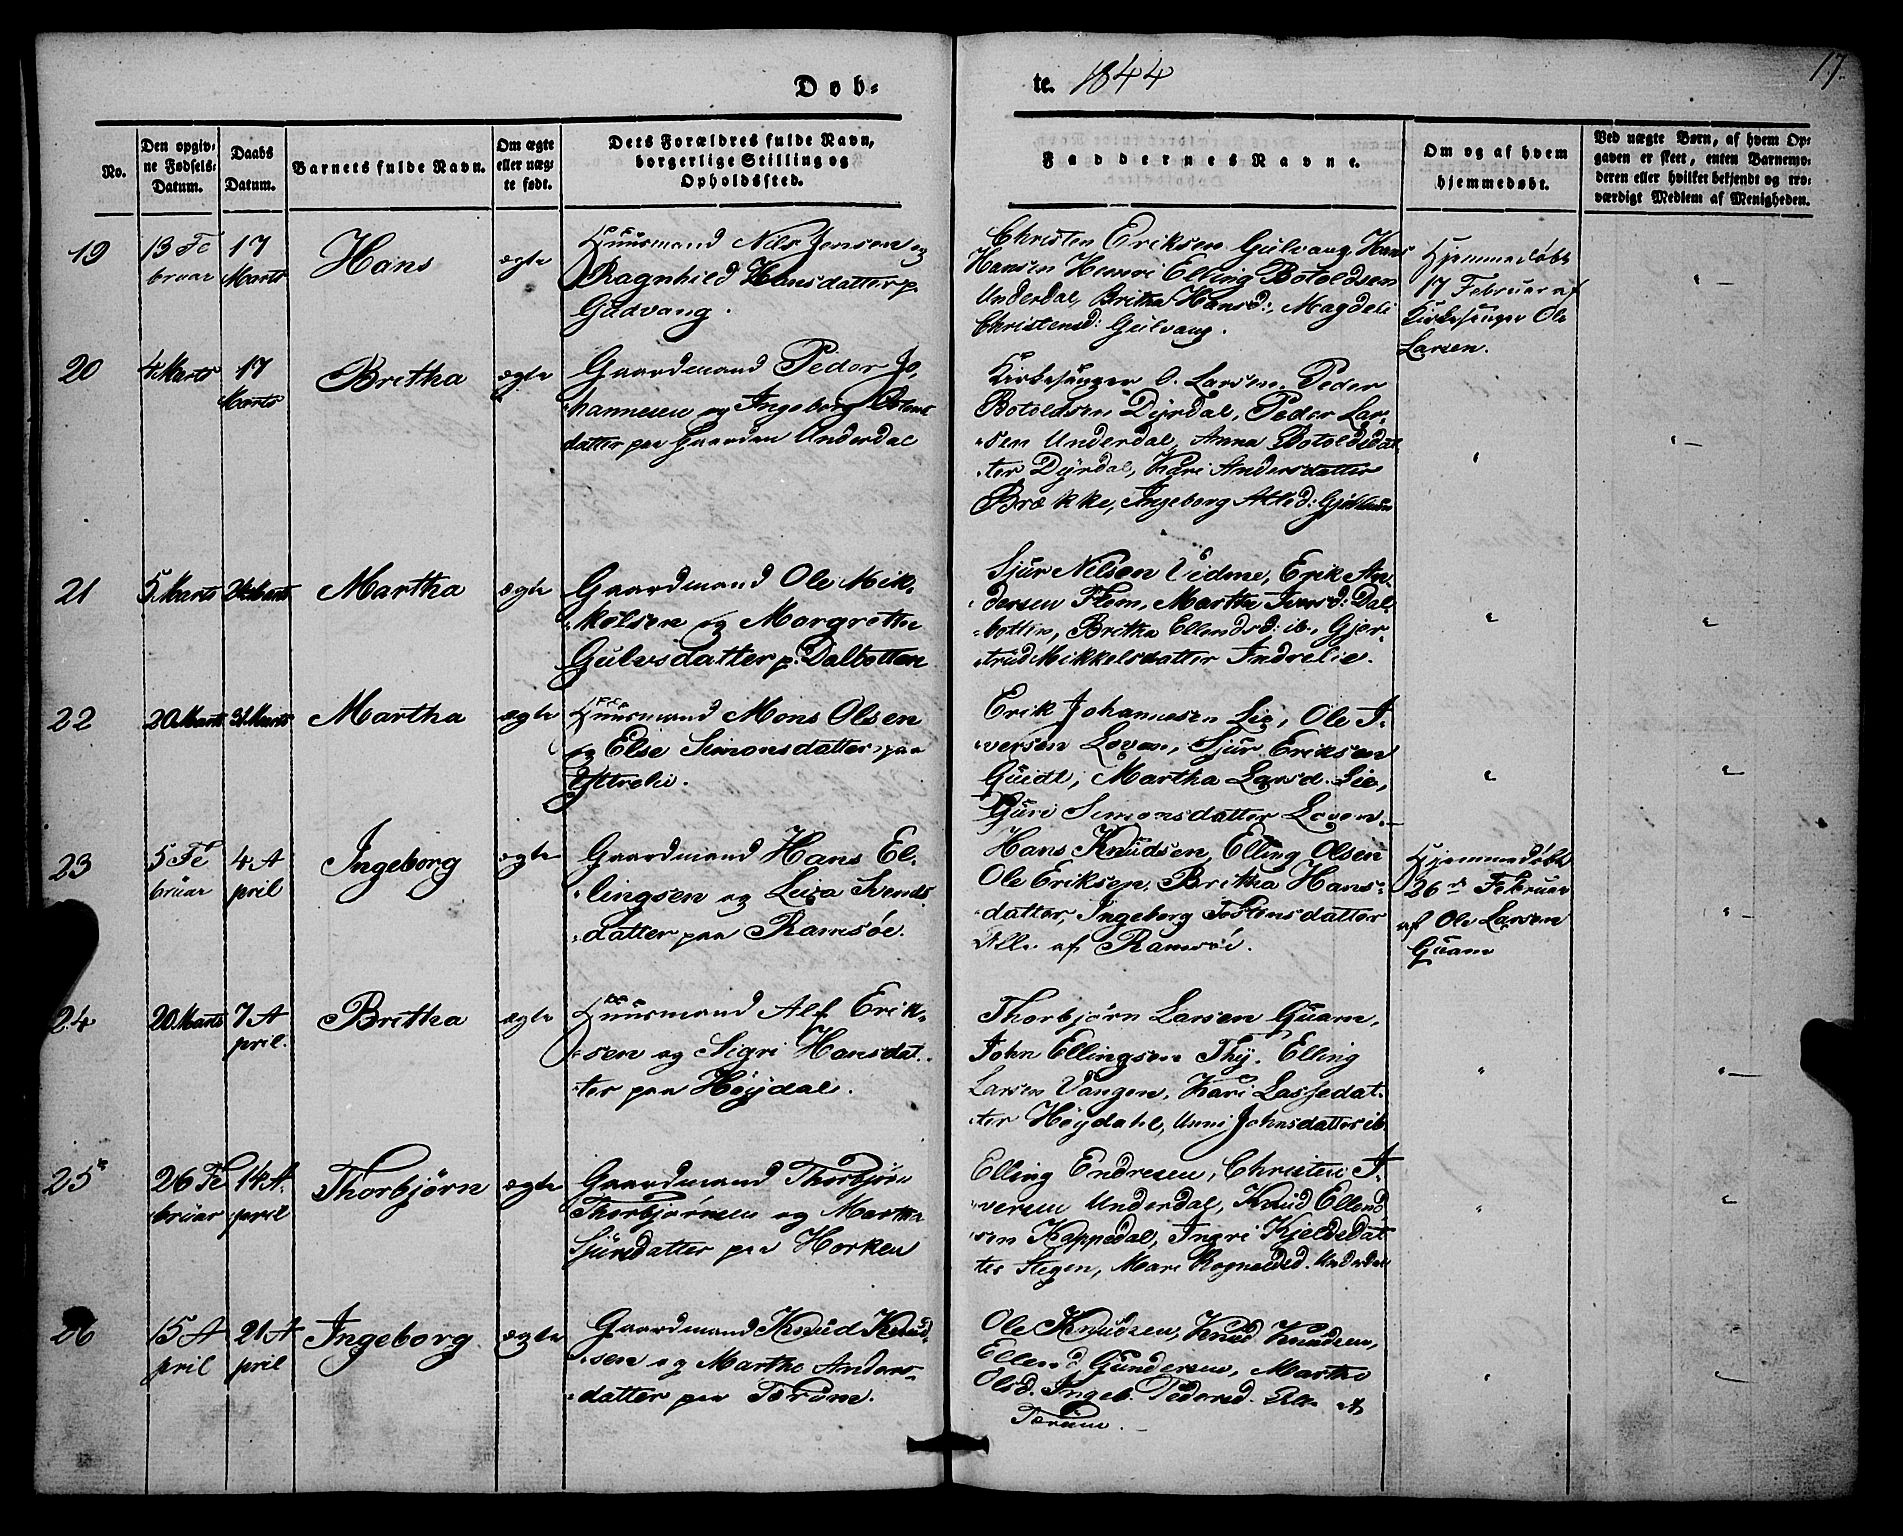 17.
Døb-
te. 1844
No.
Den opgiv-
ne Fødsels-
Datum.
Daabs
Datum.
Barnets fulde Navn.
Om ægte
eller uæg-
te født.
Dets Forældres fulde Navn,
borgerlige Stilling og
Opholdssted.
Faddernes Navne.
Om og af hvem
hjemmedøbt.
Ved uægte Børn, af hvem Op-
gaven er skeet, enten Barnemo-
deren eller hvilket bekjendt og tro-
værdigt Medlem af Menigheden.
19
13 Fe
bruar
17
Marts
Hans
ægte
Huusmand Nils Jensen og
Ragnhild Hansdatter p.
Gudvang.
Christen Eriksen Gulvang, Hans
Hansen Elling Botoldsen
Underdal, Britha Hansd:, Magdeli
Christensd: Gulvang.
Hjemmedøbt
17 Februar af
Kirkesanger Ole
Larsen.
20
4 Marts
17
Marts
Britha
ægte
Gaardmand Peder Jo-
hannesen og Ingeborg
datter paa Gaarden Underdal
Kirkesanger O. Larsen, Peder
Botoldsen Dyrdal, Peder Lar-
sen Underdal, Anna Botoldsdat
ter Dyrdal, Kari Andersdatter
Brække, Ingeborg
21
5 Marts
24 Marts
Martha
ægte
Gaardmand Ole Mik-
kelsen og Margrethe
Gulvsdatter p. Dalbotten
Sjur Nilsen Vidme, Erik An-
dersen Flom, Martha Iversd: Dal-
botten, Britha Ellendsd: ib., Gjer-
trud Mikkelsdatter Indrelie.
22
20 Marts
31 Marts
Martha
ægte
Huusmand Mons Olsen
og Else Simonsdatter paa
Ytreli.
Erik Johannesen Lie, Ole I-
versen Loven, Sjur Eriksen
Martha Larsd. Lie,
Guri Simonsdatter Loven.
23
5 Fe
bruar
4 A
pril
Ingeborg
ægte
Gaardmand Hans El-
lingsen og Leiva Svends
datter paa Ramsøe.
Hans Knudsen, Elling Olsen
Ole Eriksen, Britha Hans-
datter, Ingeborg Tostensdatter
Alle af Ramsøe.
Hjemmedøbt
26de Februar
af Ole Larsen
Guam
24
20 Marts
7 A
pril.
Britha
ægte
Huusmand Alf Erik-
sen og Sigri Hansdat-
ter paa Høydal.
Thorbjørn Larsen Guam,
John Ellingsen Thy, Elling
Larsen Vangen, Kari Lassedat-
ter Høydahl, Unni Johnsdatter ib
25
26 Fe
bruar
14 A-
pril
Thorbjørn
ægte
Gaardmand Thorbjørn
Thorbjørnsen og Martha
Sjursdatter paa Horken
Elling Endresen, Christen I-
versen Underdal, Knud Ellend
sen Kappedal, Ingri Kjeldsdat
ter Stegen, Mari Rognaldsd. Underdal
26
15 A
pril
21 A
pril
Ingeborg
ægte
Gaardmand Knud Knud-
sen og Martha Anders-
datter paa Tærum.
Ole Knudsen, Knud Knudsen,
Ellend Gundersen, Martha
Olsd. Ingeb. Pedersd. Alle af
Tærum.